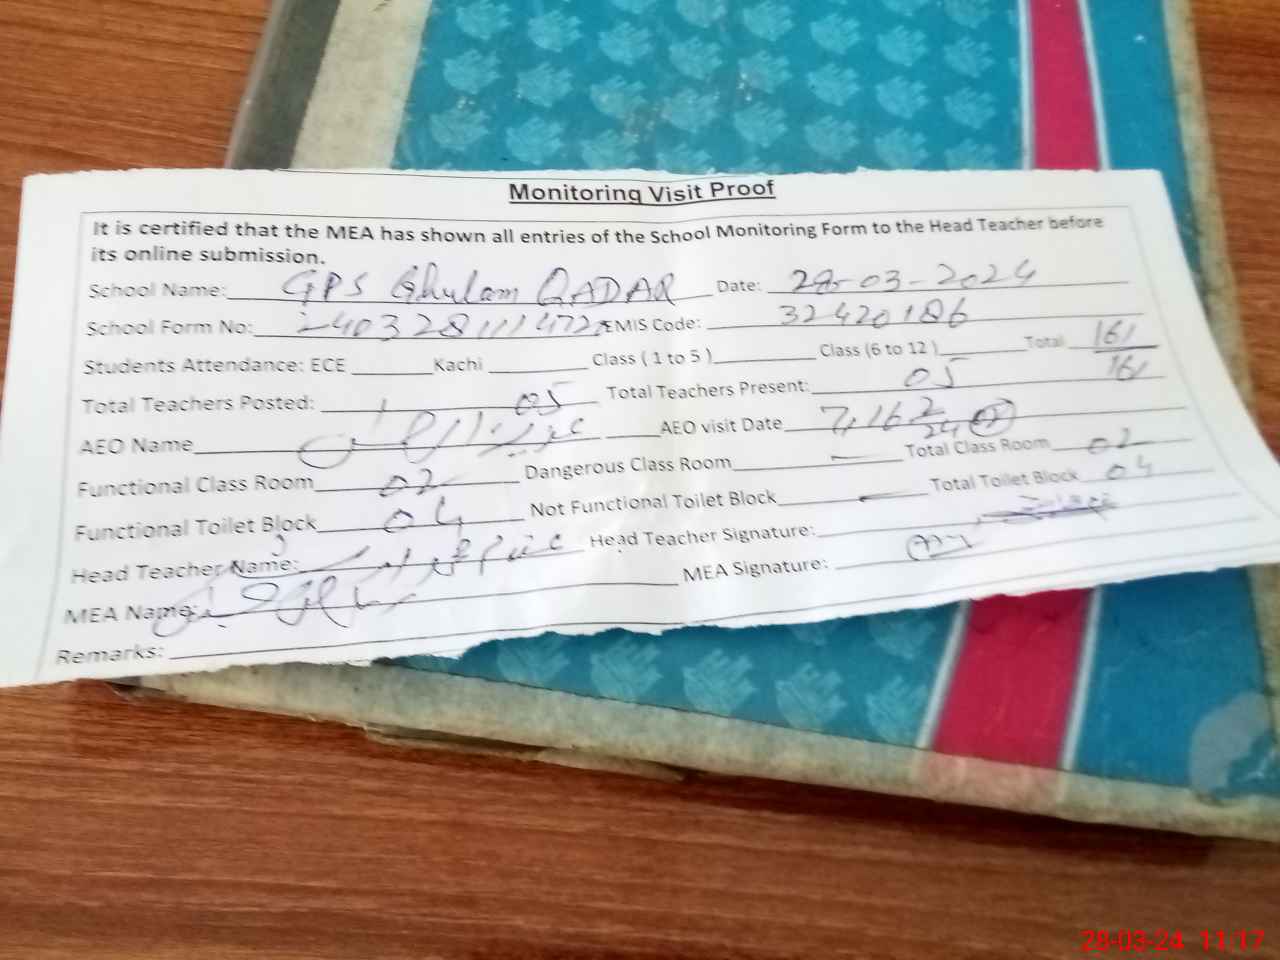 Monitoring Visit Proof
It is certified that the MEA has shown all entries of the School Monitoring Form to the Head Teacher before
its online submission.
School Name: GPS Ghulam QADAR Date: 28-03-2024
School Form No: EMIS Code: 32420186
Students Attendance: ECE Kachi Class ( 1 to 5 ) Class (6 to 12 ) Total 161/161
Total Teachers Posted: 05 Total Teachers Present: 05
AEO Name AEO visit Date
Functional Class Room 02 Dangerous Class Room — Total Class Room 02
Functional Toilet Block 04 Not Functional Toilet Block — Total Toilet Block 04
Head Teacher Name: Head Teacher Signature:
MEA Name: MEA Signature:
Remarks:
28-03-24 11:17